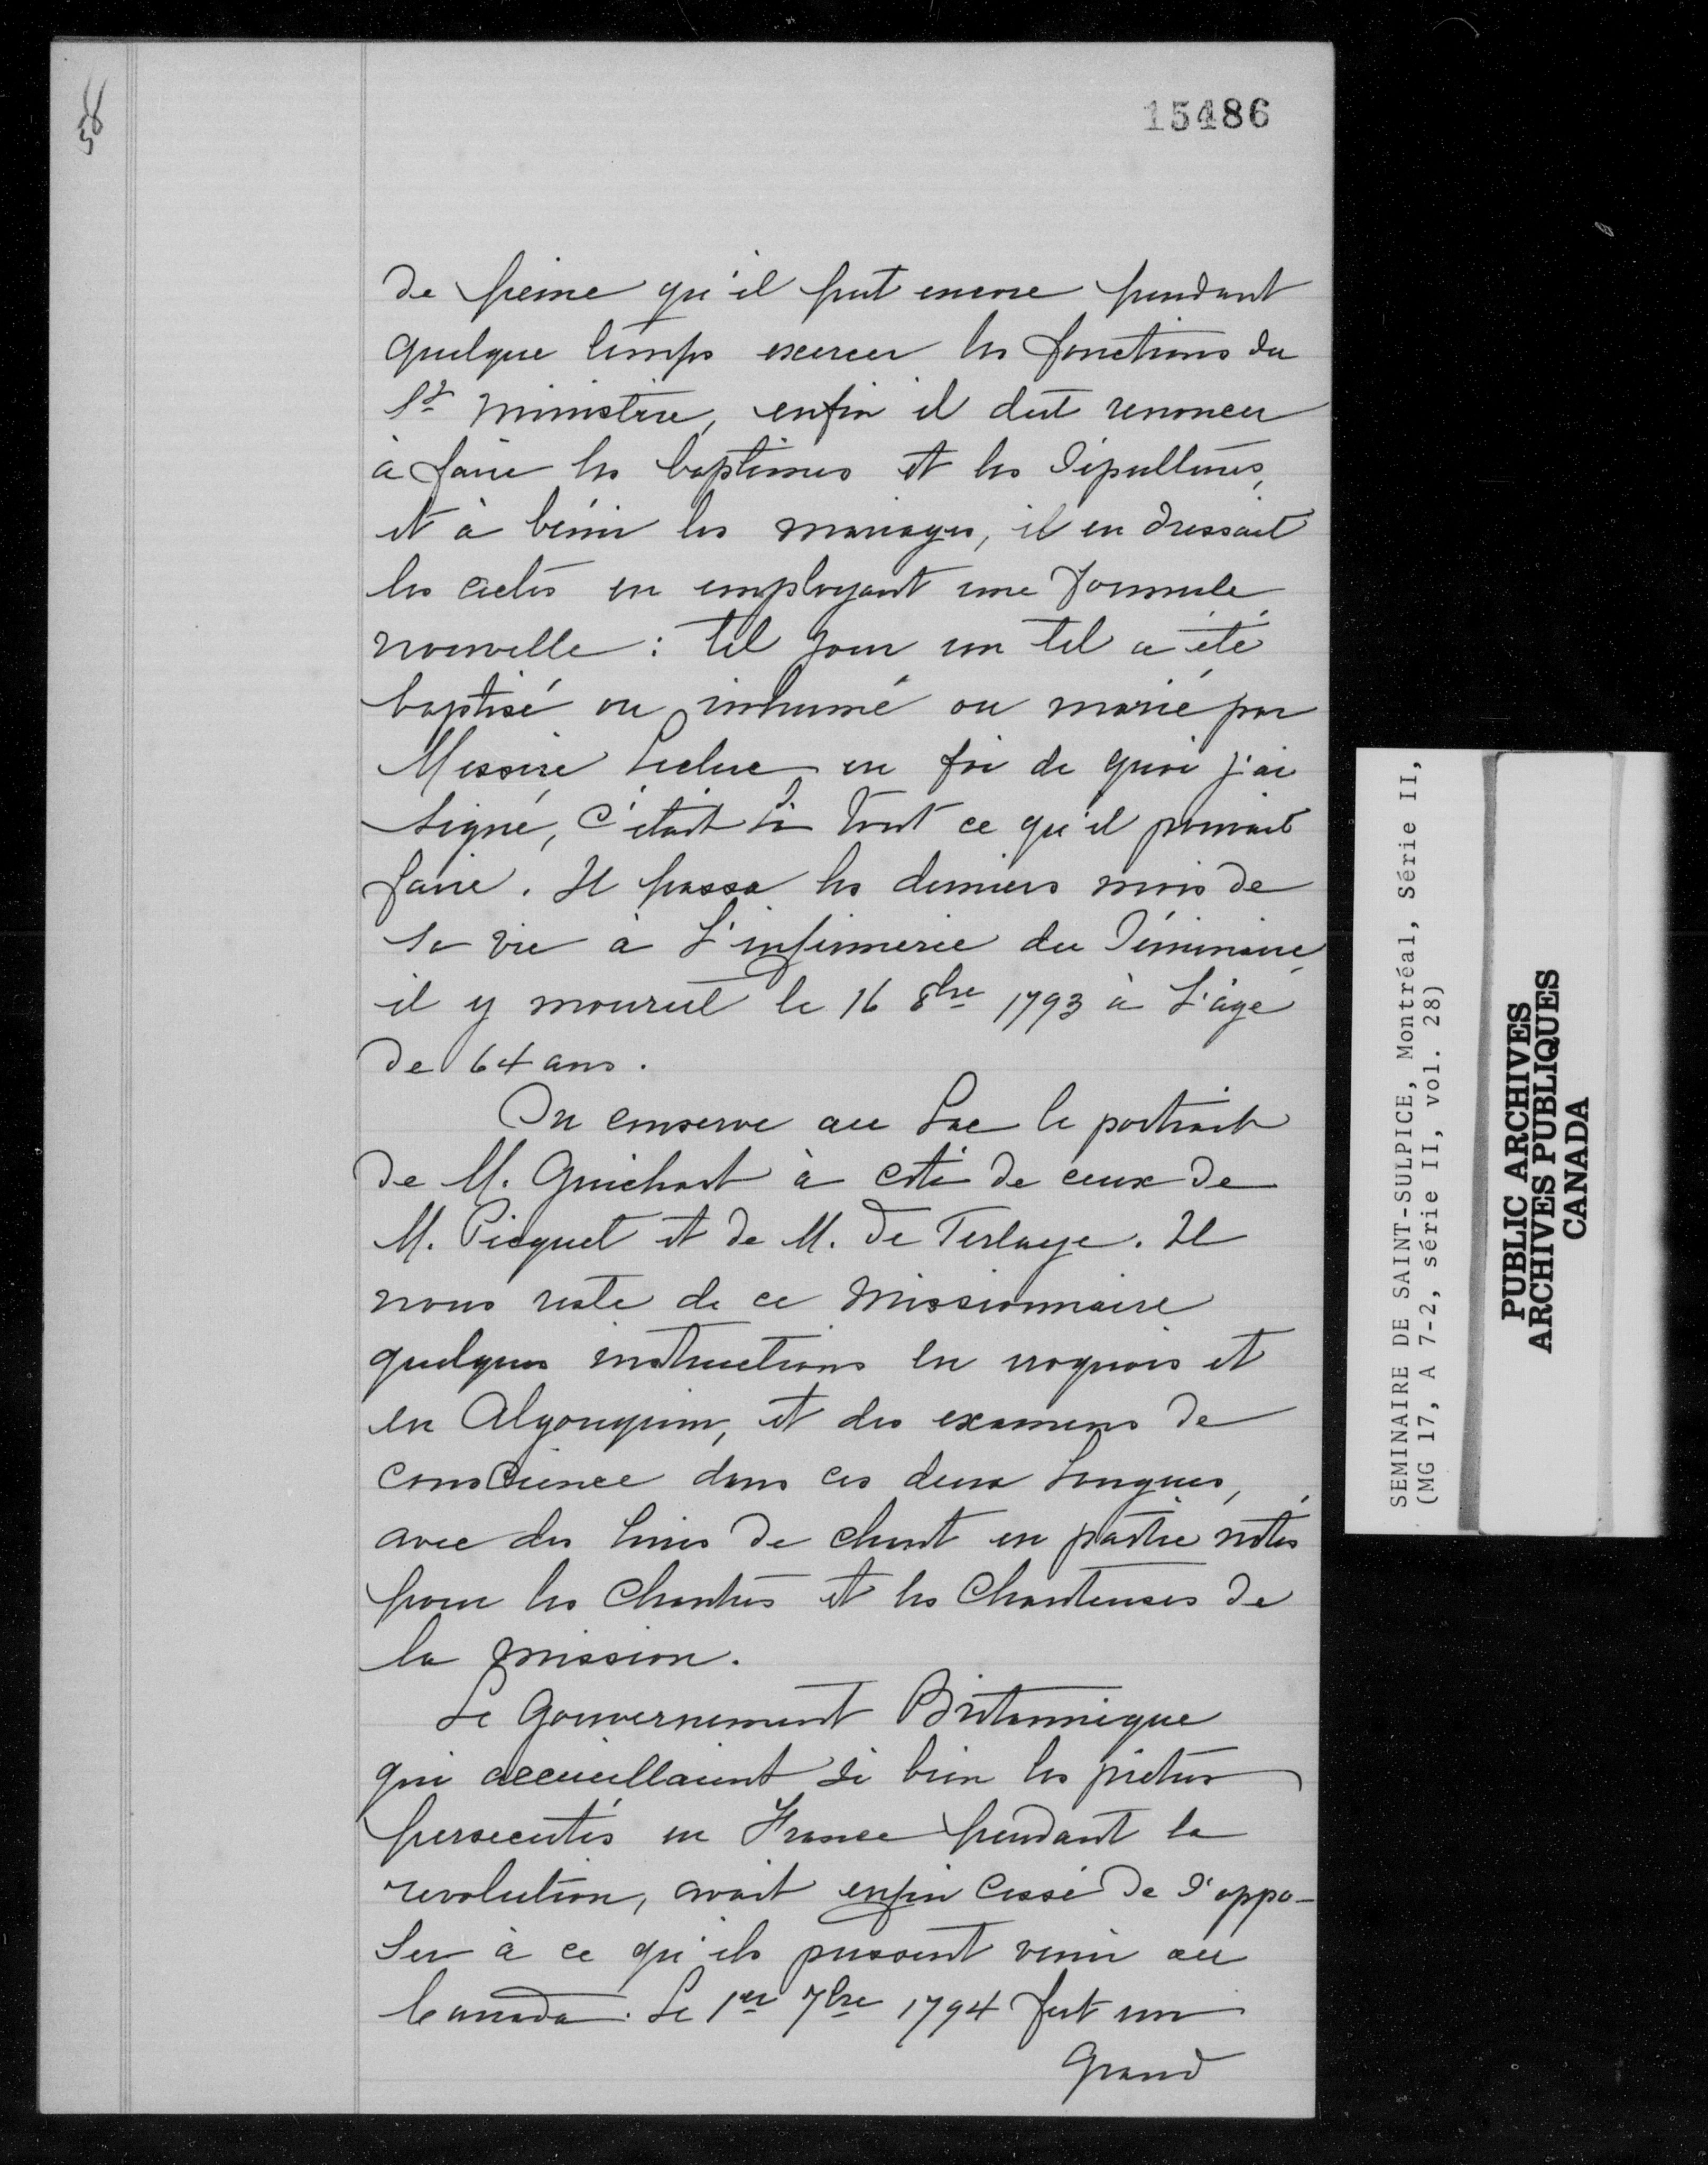 15486
58
de peine qu'il put encore pendant
quelque temps exercer les fonctions du
St ministère, enfin il dut renoncer
à faire les baptêmes et les sépultures,
et à bénir les mariages, il en dressait
les actes en employant une formule
nouvelle : tel jour un tel a été
baptisé ou inhumé ou marié par
Messire Leclerc en foi de quoi j'ai
signé, c'était là tout ce qu'il pouvait
faire. Il passa les derniers mois de
sa vie à l'infirmerie du Séminaire,
il y mourut le 16 8bre 1793 à l'âge
de 64 ans.
On conserve au Lac le portrait
de M. Guichart à coté de ceux de
M. Picquet et de M. de Terlaye. Il
nous reste de ce missionnaire
quelques instructions en iroquois et
en Algonquin, et des examens de
conscience dans ces deux langues,
avec des livres de chant en partie notés
pour les chantres et les chanteuses de
la mission.
Le Gouvernement Britannique
qui accueillaient si bien les prêtres
persecutés en France pendant la
revolution, avait enfin cessé de s'oppo-
ser à ce qu'ils pussent venir au
Canada. Le 1er 7bre 1794 fut un
Grand
SEMINAIRE DE SAINT-SULPICE, Montréal, Série II,
(MG 17, A 7-2, série II, vol. 28)
PUBLIC ARCHIVES
ARCHIVES PUBLIQUES
CANADA